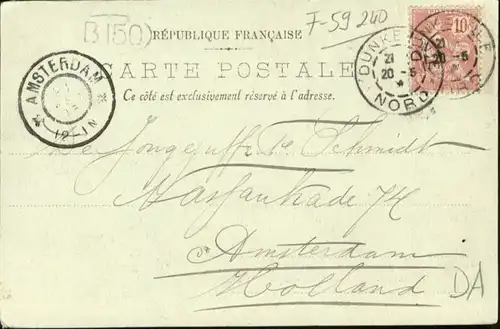 B150
F-59 240
RÉPUBLIQUE FRANÇAISE
CARTE POSTALE
Ce côté est exclusivement réservé à l'adresse.
AMSTERDAM
12-1N
DUNKE
21
20 -5
NORD
10
21
20 -5
De Jongejuffr. Schmidt
Nassaukade 74
Amsterdam
Holland
DA